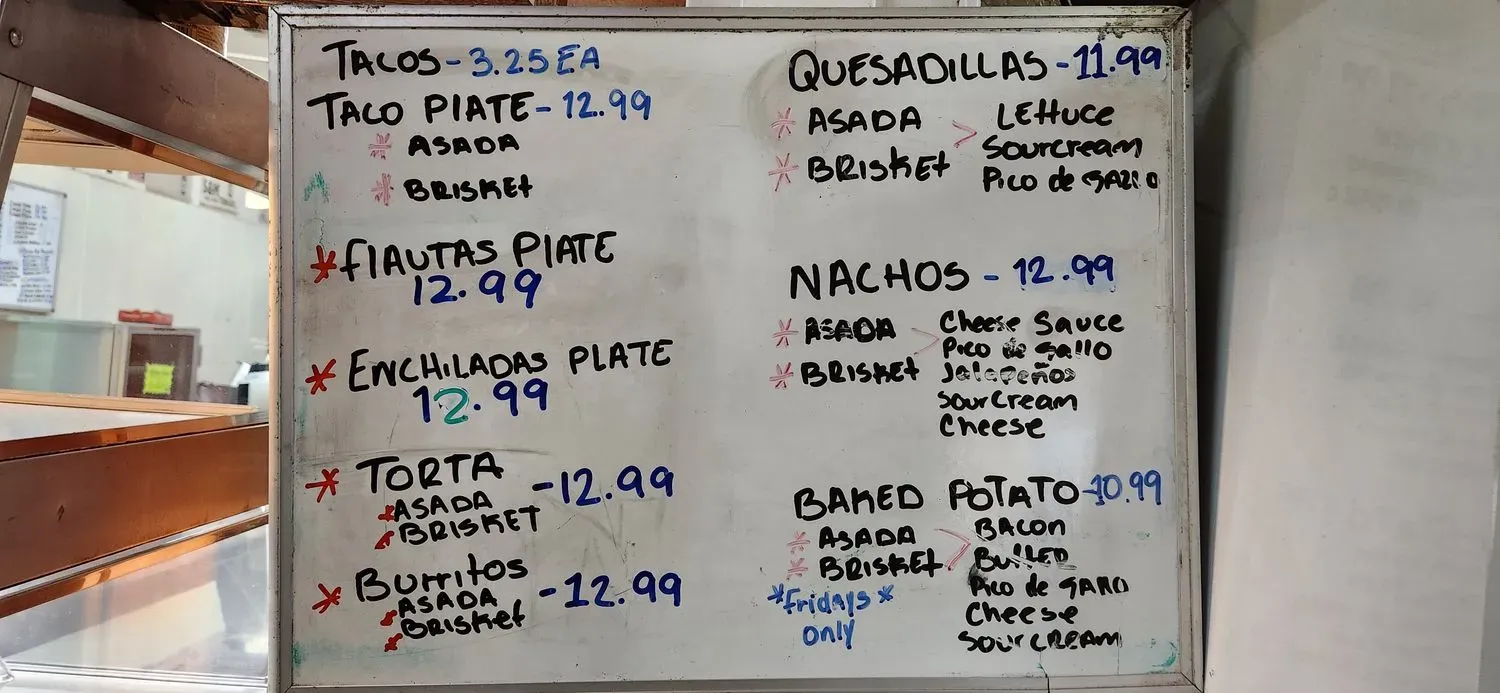 TACOS - 3.25 EA
TACO PlATE - 12.99
* ASADA
* BRISKEt
* flAUTAS PlATE
12.99
* ENCHiLADAS PLATE
12.99
* TORTA - 12.99
* ASADA
* BRISKET
* Burritos - 12.99
* ASADA
* BRISKEt
QUESADILLAS - 11.99
* ASADA > LEttuce
* BRISKEt Sourcream
Pico de GAllO
NACHOS - 12.99
* ASADA > Cheese Sauce
* BRISKEt Pico de Gallo
Jalapeños
sour Cream
Cheese
BAKED POTATO - 10.99
* ASADA > BACON
* BRISKEt
Pico de GAllO
*fridays* Cheese
only SOUR CREAM